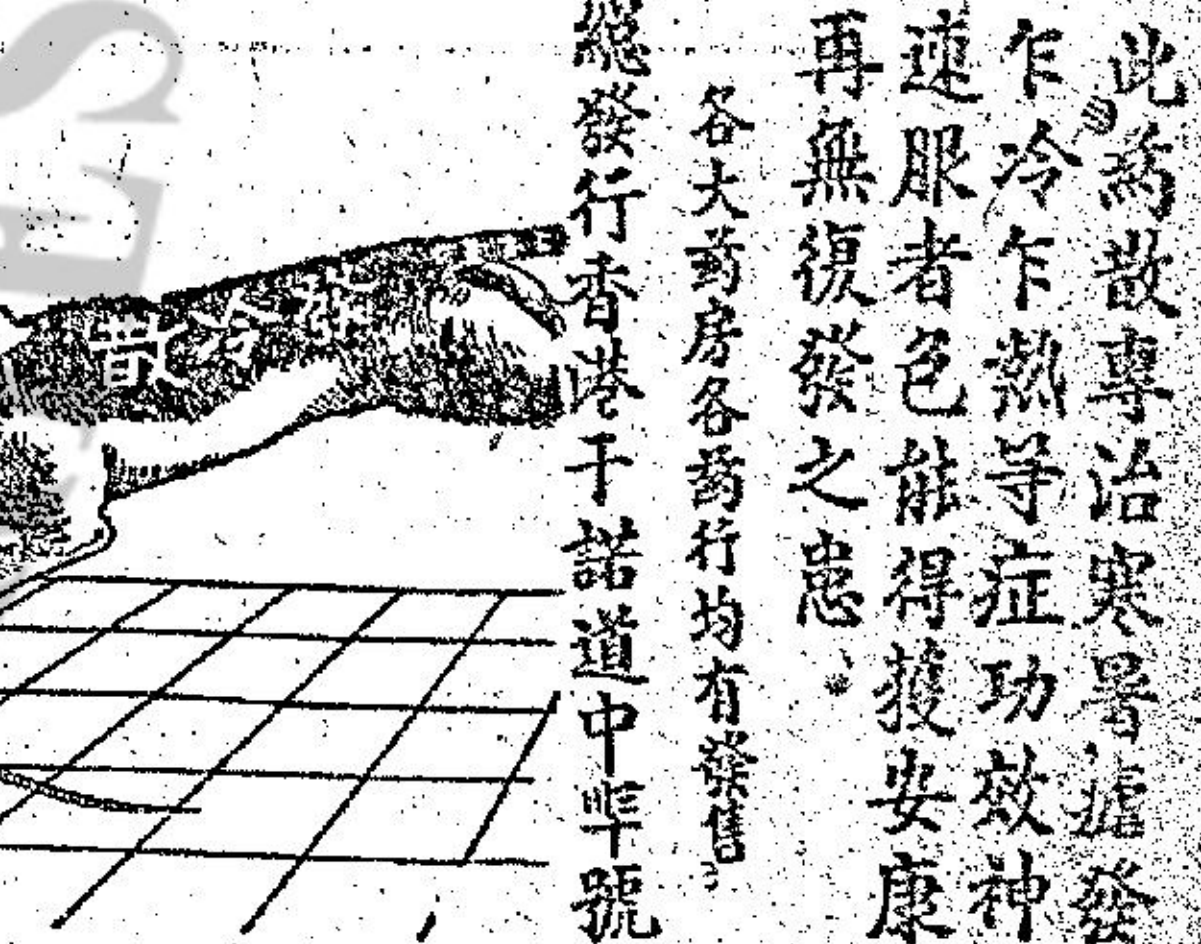 此為散專治寒暑瘧發
乍冷乍熱等症功效神
速服者包能得獲安康
再無復發之患
各大葯房各葯行均有發售
總發行香港干諾道中號
發冷散